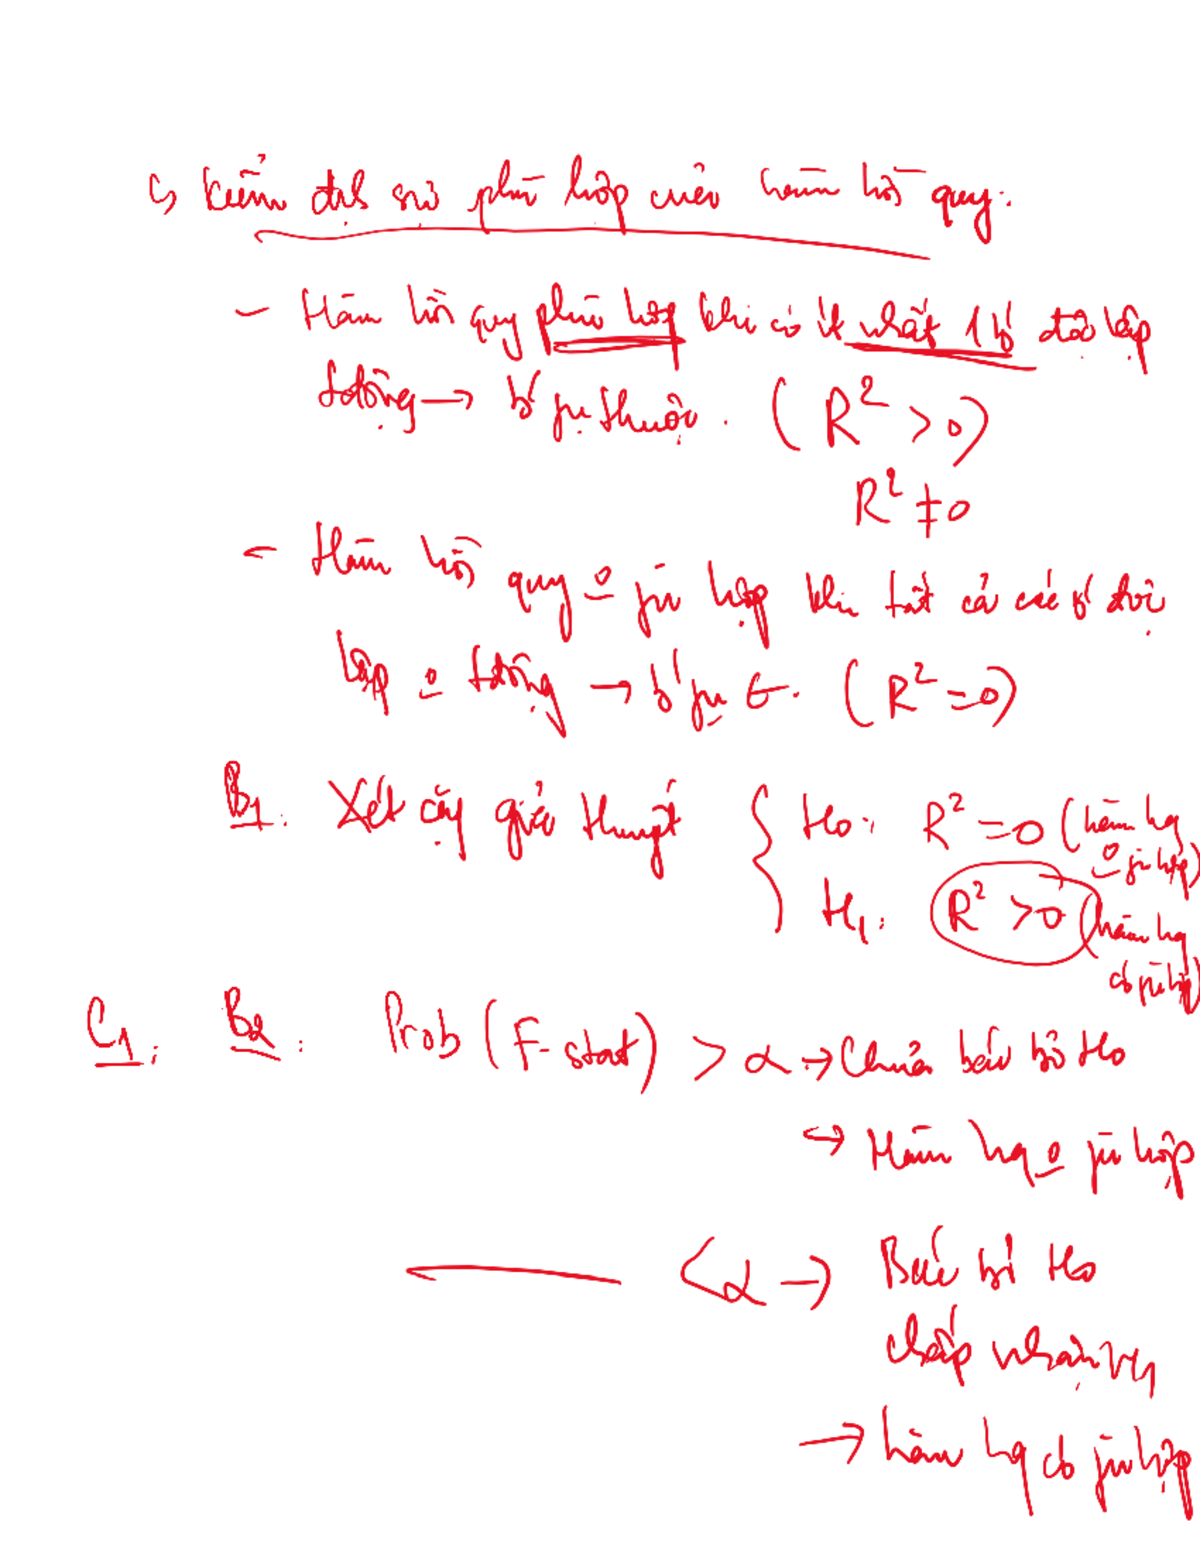 ↳ Kiểm định sự phù hợp của hàm hồi quy:
- Hàm hồi quy phù hợp khi có ít nhất 1 b' độc lập
tđộng → b' fụ thuộc. (R² > 0)
R² ≠ 0
- Hàm hồi quy o fù hợp khi tất cả các b' độc
lập o tđộng → b' fụ t. (R² = 0)
B1: Xét cặp giả thuyết { H0: R² = 0 (hàm hq
o fù hợp)
H1: R² > 0 (hàm hq
có fù hợp)
C1: B2: Prob (F-stat) > α → Chưa bác bỏ H0
↪ Hàm hq o fù hợp
< α → Bác bỏ H0
chấp nhận H1
→ hàm hq có fù hợp